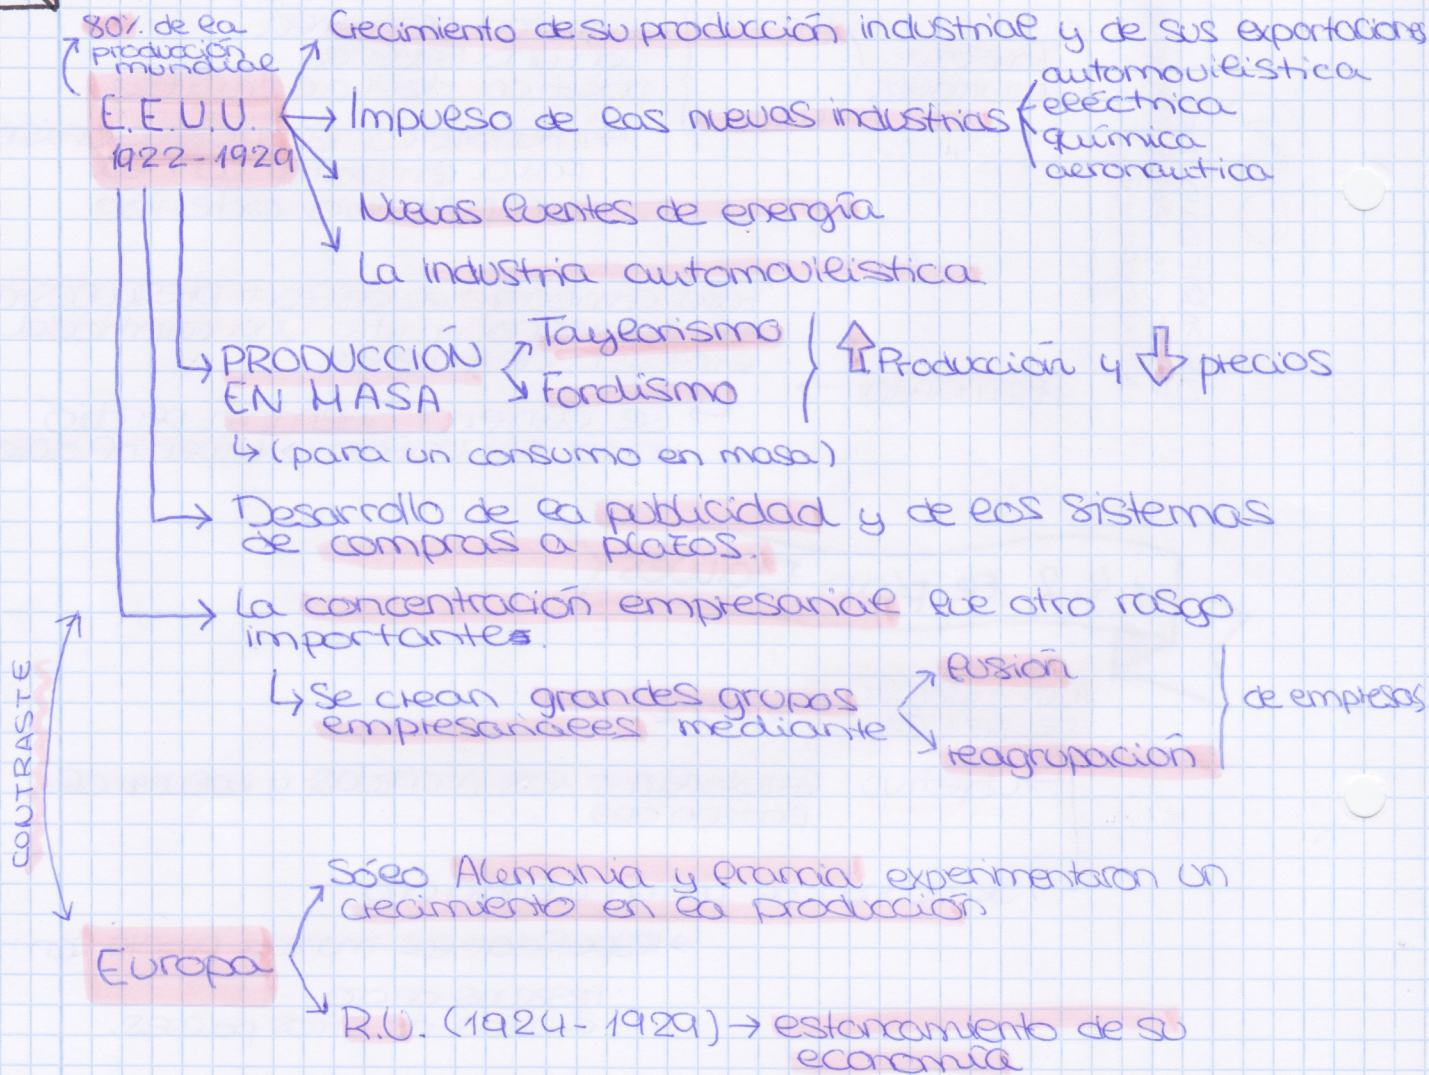 80% de la
producción
mundial
E.E.U.U.
1922-1929
Crecimiento de su producción industrial y de sus exportaciones
Impulso de las nuevas industrias
automovilística
eléctrica
química
aeronautica
Nuevas fuentes de energía
La industria automovilistica
PRODUCCIÓN
EN MASA
Taylorismo
Fordismo
↑ Producción y ↓ precios
↳ (para un consumo en masa)
Desarrollo de la publicidad y de los sistemas
de compras a plazos.
La concentración empresarial fue otro rasgo
importante.
↳ Se crean grandes grupos
empresariales mediante
fusión
reagrupación
de empresas
CONTRASTE
Europa
Sólo Alemania y Francia experimentaron un
crecimiento en la producción
R.U. (1924-1929) → estancamiento de su
economía